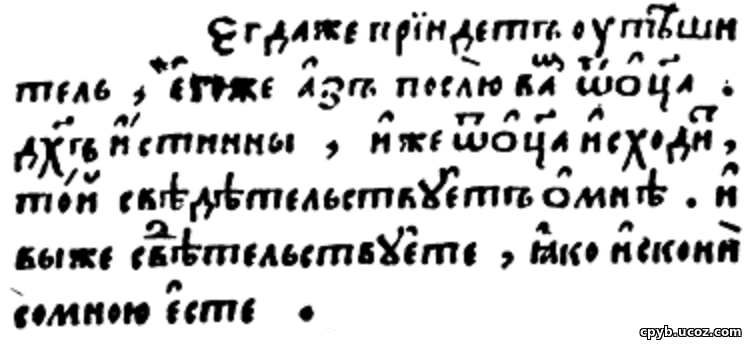 Єгда же прїидетъ оутѣши
тель, е҆гоже а҆зъ послю ва̑ ѿ о҆ц҃а .
дх҃ъ и҆́стинны, и҆же ѿ о҆ц҃а и҆сходи̑,
то́й свѣдѣтельствꙋ́етъ о҆мнѣ . и҆
выже свѣ̑тельствꙋ́ете, ꙗ҆́ко и҆скони̑
сомною е҆сте .
cpyb.ucoz.com